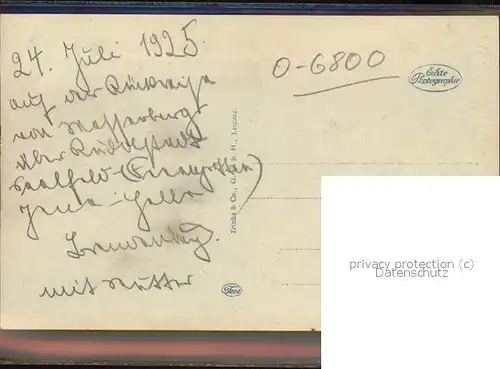 24. Juli 1925.
auf der Rückreise
von
über Rudolstadt
Saalfeld-
Jena-Halle
mit Mutter
O-6800
Echte
Photographie
Trinks & Co., G. m. b. H., Leipzig.
privacy protection (c)
Datenschutz